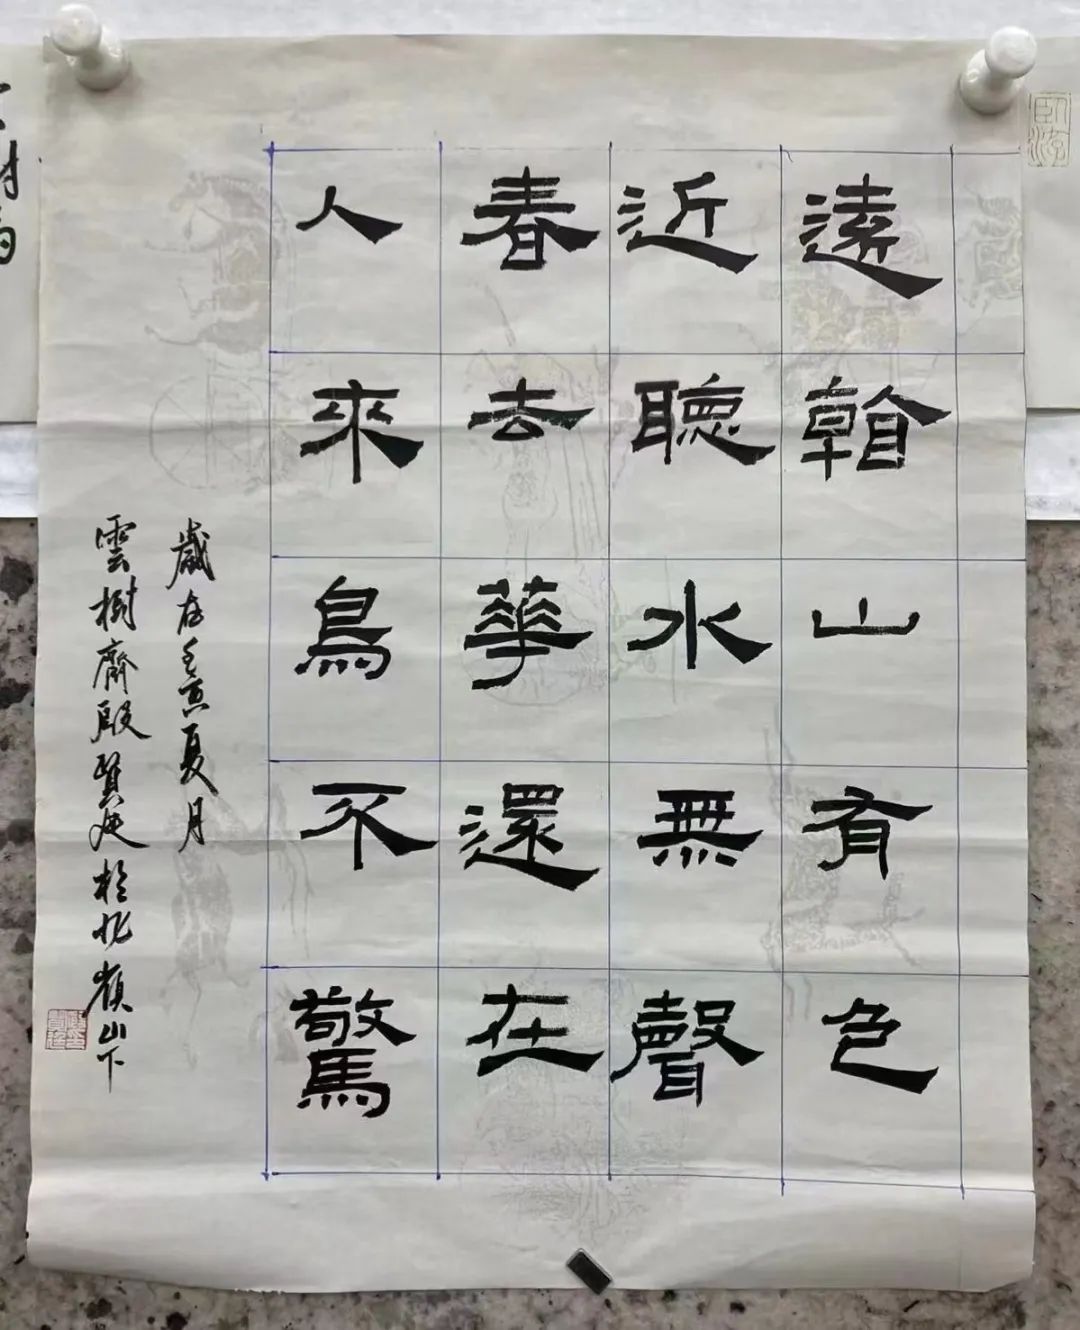 遠看山有色
近聽水無聲
春去華還在
人來鳥不驚
歲在壬寅夏月
雲樹齋殷賢 於 嶺山下
臥游